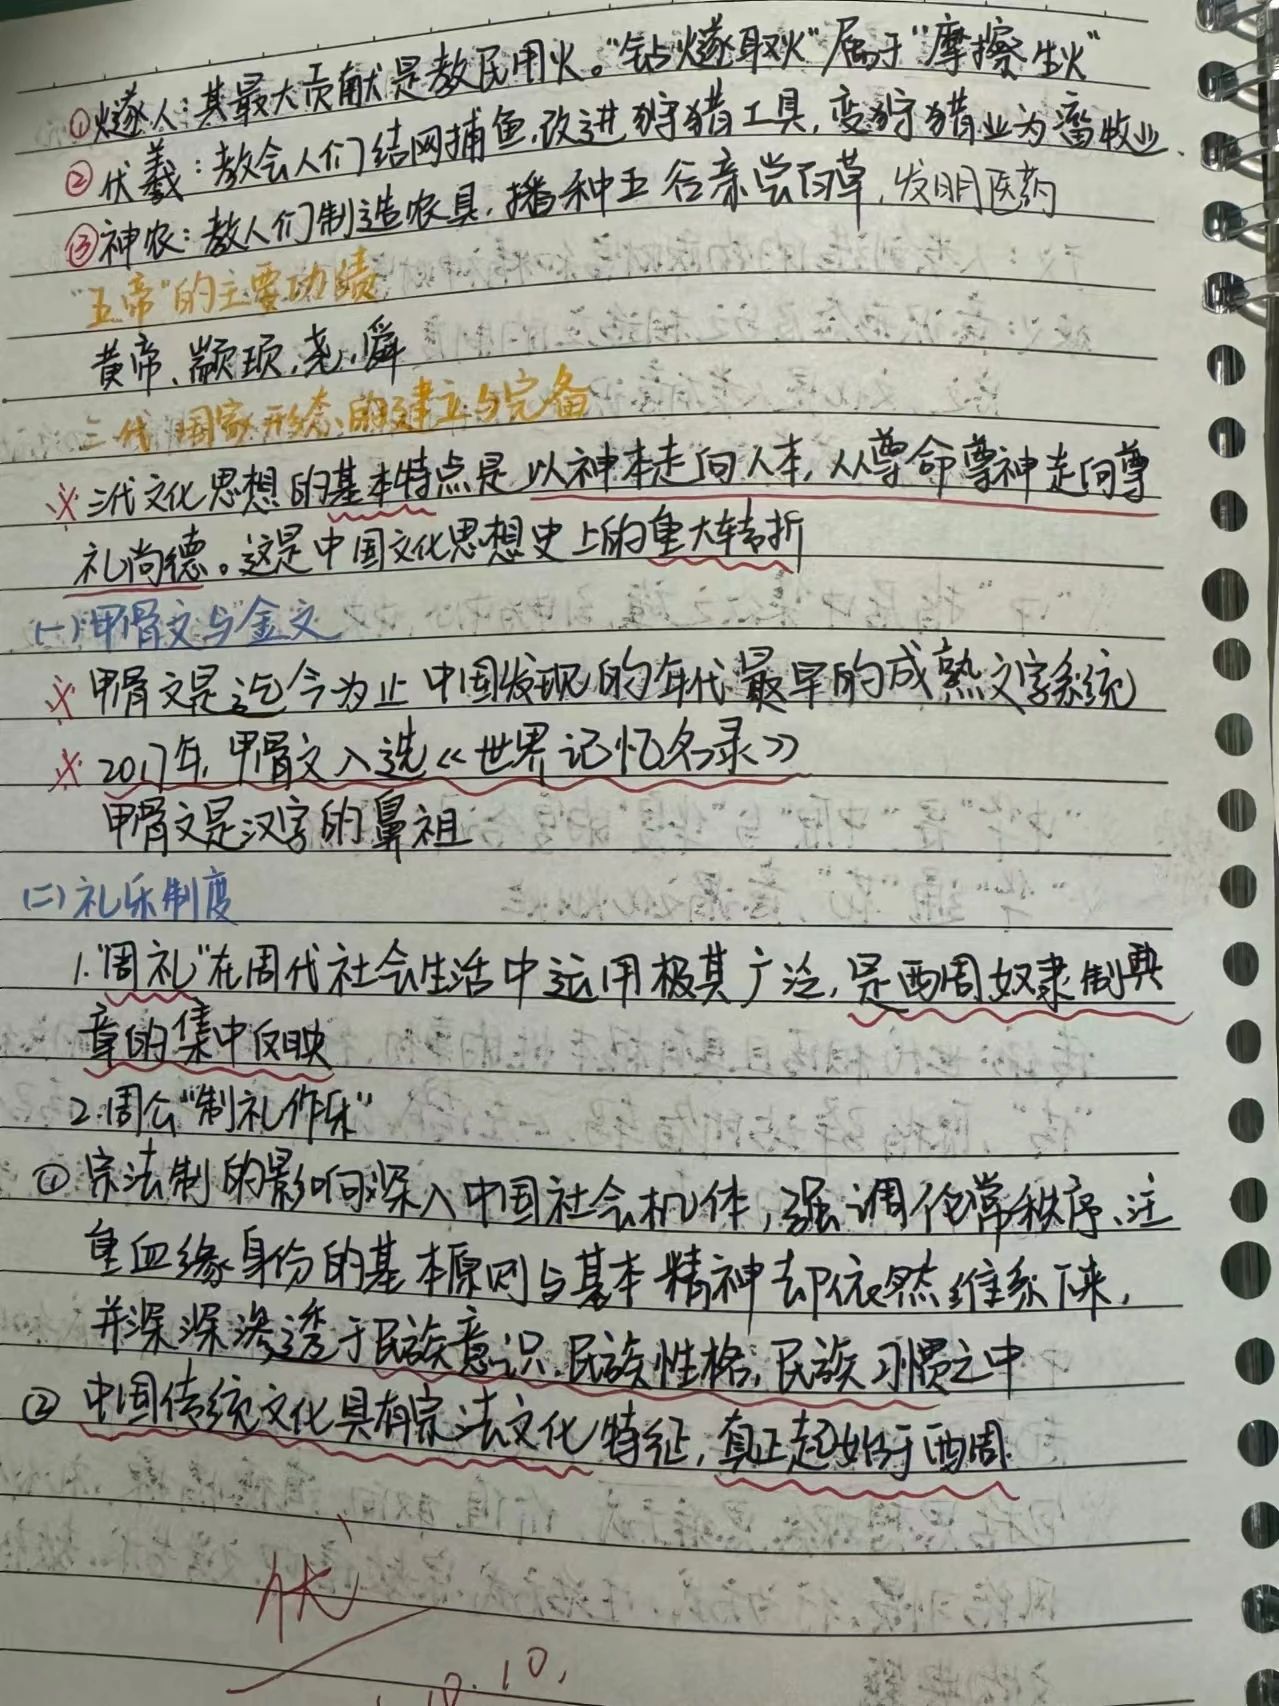 ①燧人：其最大贡献是教民用火。“钻燧取火”属于“摩擦生火”
②伏羲：教会人们结网捕鱼，改进狩猎工具，变狩猎业为畜牧业
③神农：教人们制造农具，播种五谷亲尝百草，发明医药
“五帝”的主要功绩
黄帝、颛顼，尧，舜
三代国家形态的建立与完备
※三代文化思想的基本特点是以神本走向人本，从尊命尊神走向尊
礼尚德。这是中国文化思想史上的重大转折
(一)甲骨文与金文
※甲骨文是迄今为止中国发现的年代最早的成熟文字系统
※2017年，甲骨文入选《世界记忆名录》
甲骨文是汉字的鼻祖
(二)礼乐制度
1.“周礼”在周代社会生活中运用极其广泛，是西周奴隶制典
章的集中反映
2.周公“制礼作乐”
①宗法制的影响深入中国社会机体，强调伦常秩序、注
重血缘身份的基本原则与基本精神却依然维系下来，
并深深渗透于民族意识，民族性格，民族习惯之中
②中国传统文化具有宗法文化特征，真正起始于西周.
优
10.10.